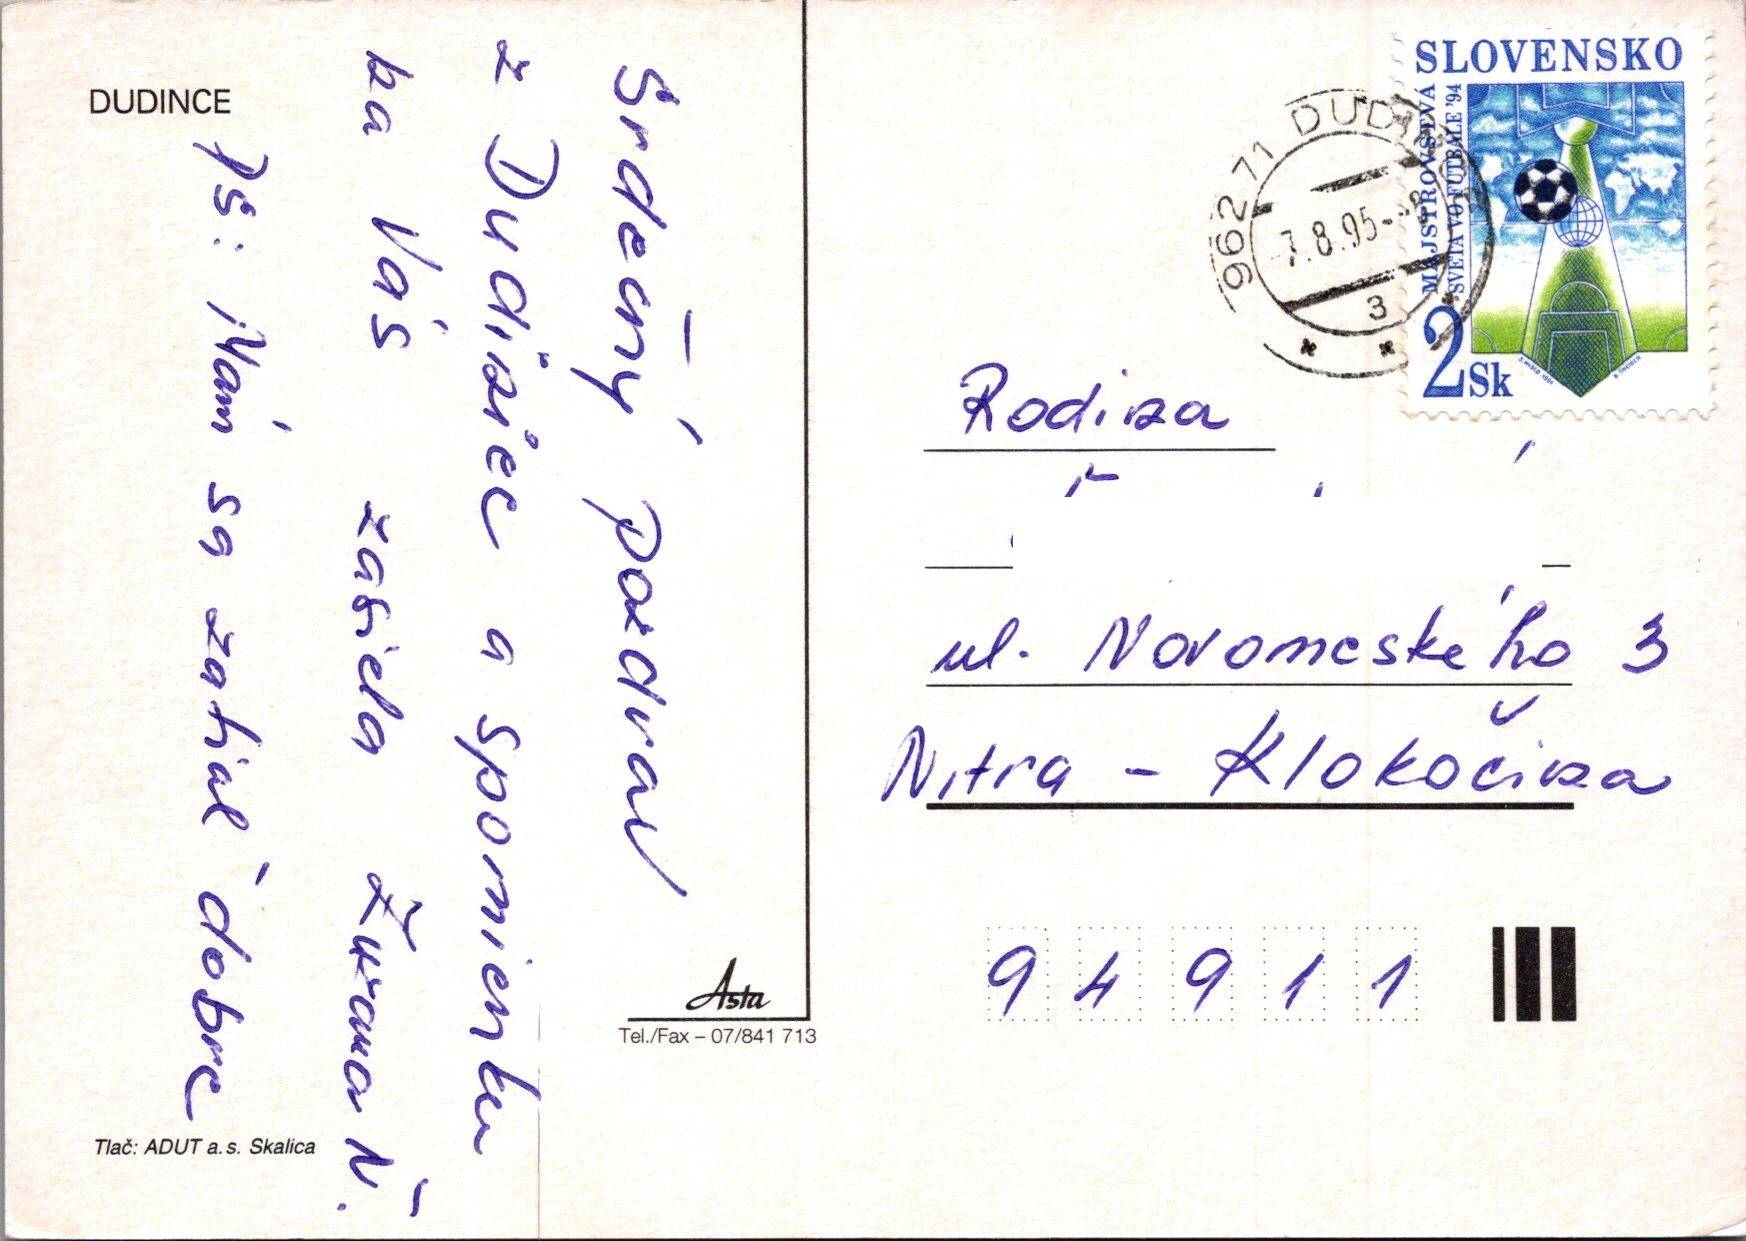 DUDINCE
Srdečný pozdrav
z Dudiniec a spomienku
na Vás zasiela Zuzana N.
PS: Nám sa zatiaľ dobre
Tlač: ADUT a.s. Skalica
Asta
Tel./Fax – 07/841 713
SLOVENSKO
MAJSTROVSTVÁ
SVETA VO FUTBALE '94
2Sk
962 71 DUDINCE
7.8.95
3
Rodina
ul. Novomeského 3
Nitra - Klokočina
94911